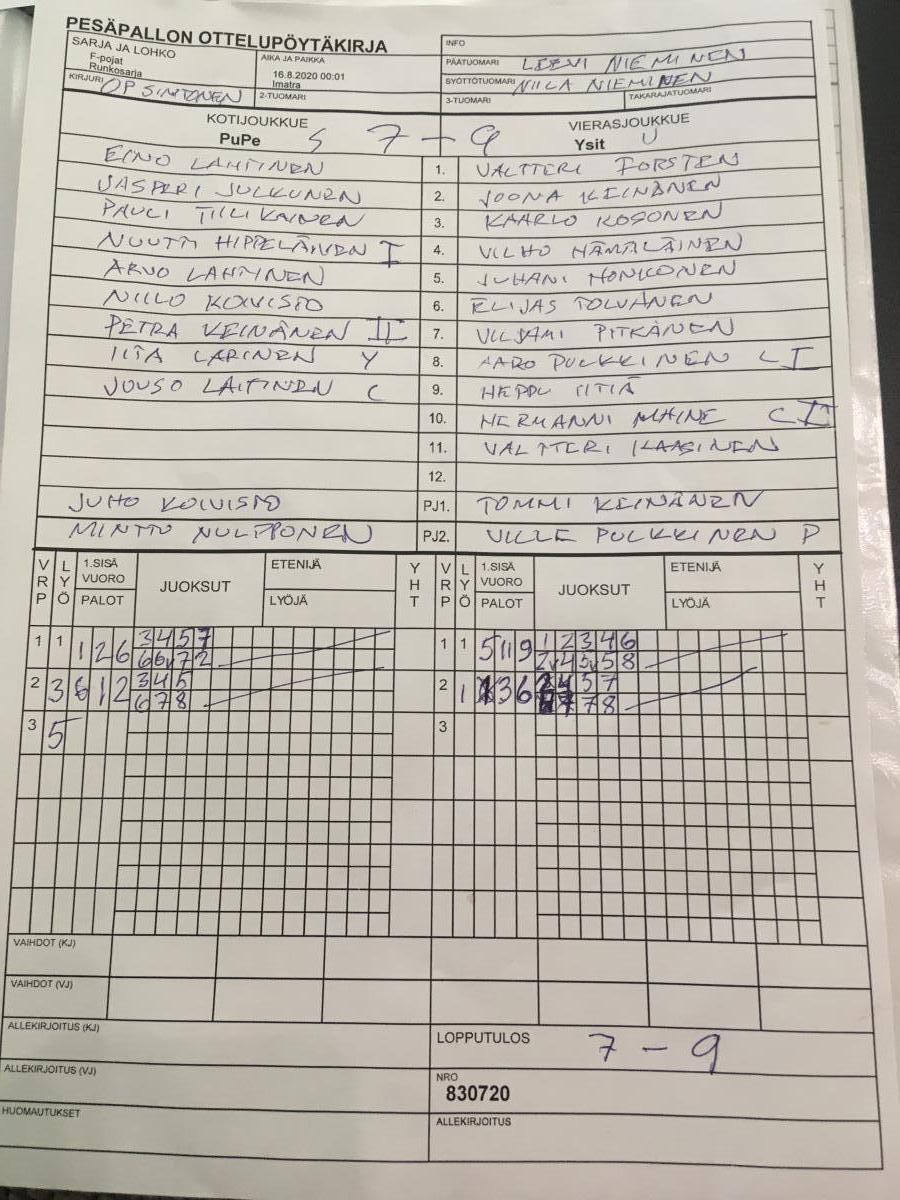 PESÄPALLON OTTELUPÖYTÄKIRJA
SARJA JA LOHKO
F-pojat
Runkosarja
AIKA JA PAIKKA
16.8.2020 00:01
Imatra
KIRJURI OP SIMONEN
2-TUOMARI
INFO
PÄÄTUOMARI LEEVI NIEMINEN
SYÖTTÖTUOMARI NIILA NIEMINEN
3-TUOMARI
TAKARAJATUOMARI
KOTIJOUKKUE
PuPe S
7 - 9
VIERASJOUKKUE
Ysit U
EINO LAHTINEN 1. VALTTERI FORSTEN
JASPERI JULKUNEN 2. JOONA KEINÄNEN
PAULI TIILIKAINEN 3. KAARLO KOSONEN
NUUTTI HIPPELÄINEN I 4. VILHO HÄMÄLÄINEN
ARVO LAHTINEN 5. JUHANI HONKONEN
NIILO KOIVISTO 6. ELIJAS TOLVANEN
PETRA KEINÄNEN II 7. VILJAMI PITKÄNEN
IITA LARINEN Y 8. AARO PULKKINEN L I
JOUSO LAITINEN C 9. HEPPU IITIÄ
10. HERMANNI C II
11. VALTTERI KAASINEN
12.
JUHO KOIVISTO PJ1. TOMMI KEINÄNEN
MINTTU NULPPONEN PJ2. VILLE PULKKINEN P
VRP LYÖ 1.SISÄ VUORO PALOT JUOKSUT ETENIJÄ LYÖJÄ YHT VRP LYÖ 1.SISÄ VUORO PALOT JUOKSUT ETENIJÄ LYÖJÄ YHT
1 1 1 2 6 3 4 5 7 1 1 5 11 9 1 2 3 4 6
6 6v 7 2 2v 4 5v 5 8
2 3 6 1 2 3 4 5 2 1 3 6 5 7
6 7 8 7 8
3 5 3
VAIHDOT (KJ)
VAIHDOT (VJ)
ALLEKIRJOITUS (KJ)
LOPPUTULOS 7 - 9
ALLEKIRJOITUS (VJ)
NRO
830720
HUOMAUTUKSET
ALLEKIRJOITUS